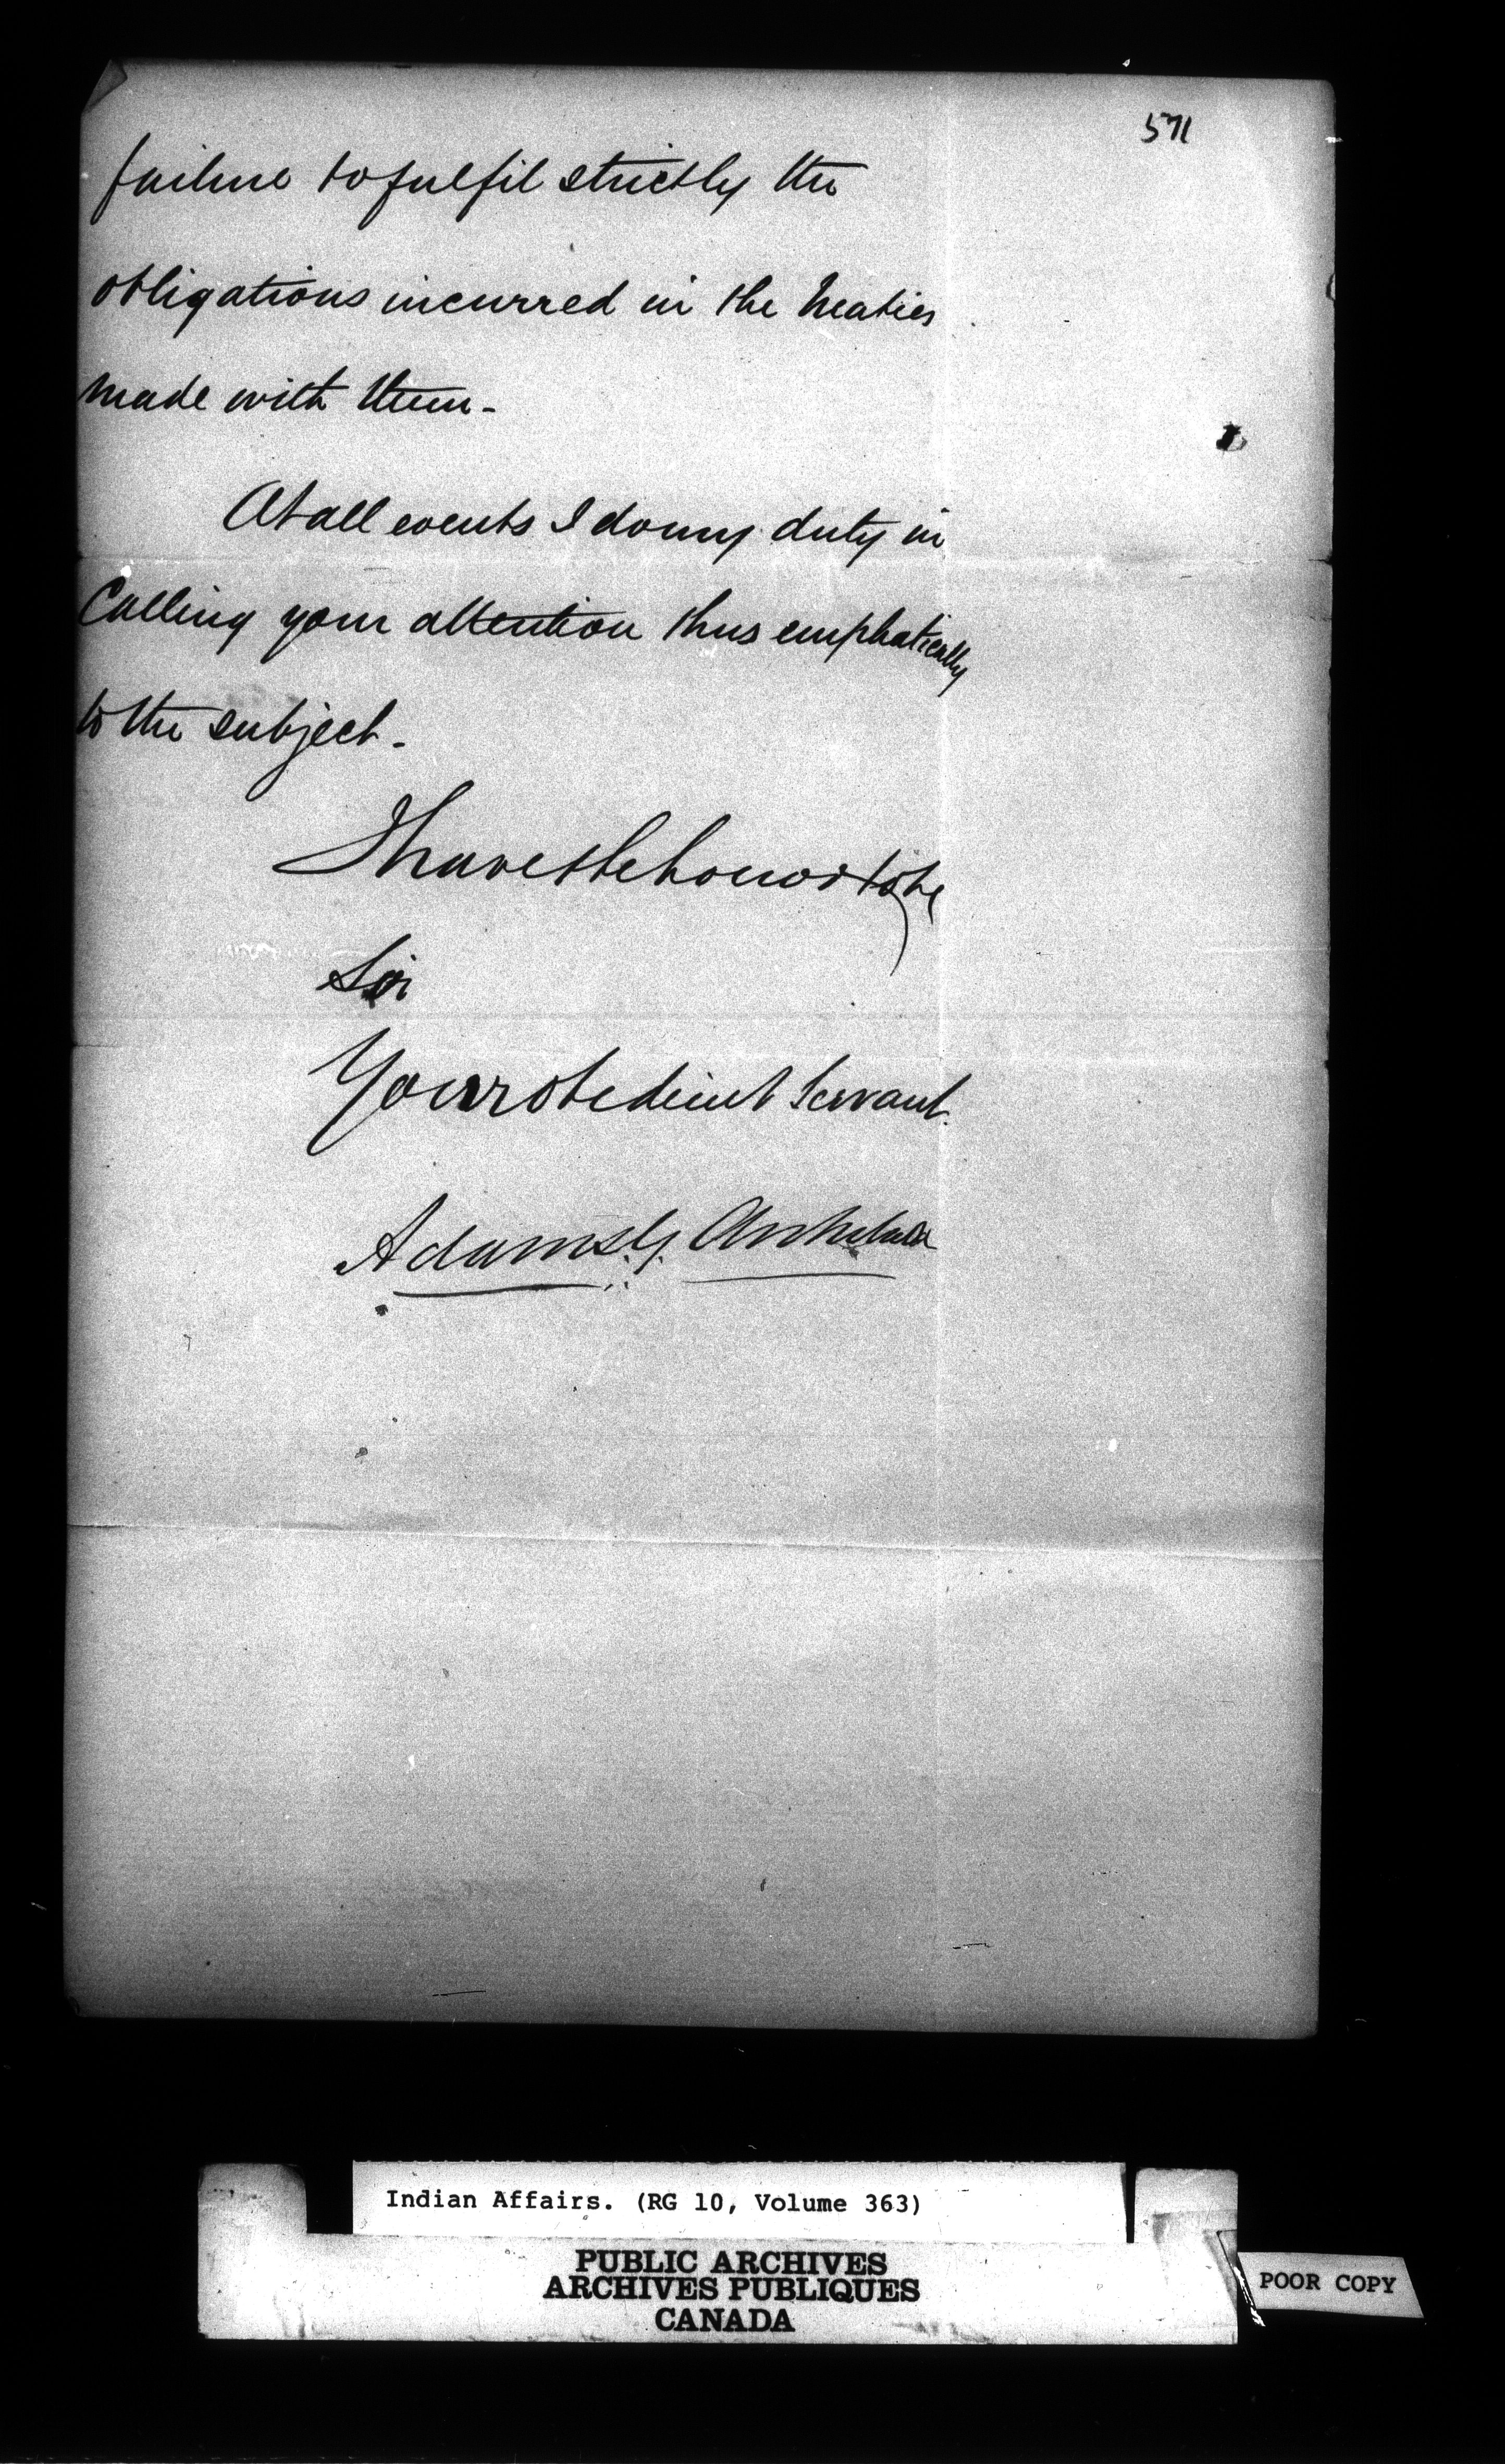 571
failure to fulfil strictly the
obligations incurred in the treaties
made with them -
At all events I do my duty in
Calling your attention thus emphatically
to the subject -
I have the honor to be
Sir
Your obedient Servant.
Adams G. Archibald
Indian Affairs. (RG 10, Volume 363)
PUBLIC ARCHIVES
ARCHIVES PUBLIQUES
CANADA
POOR COPY